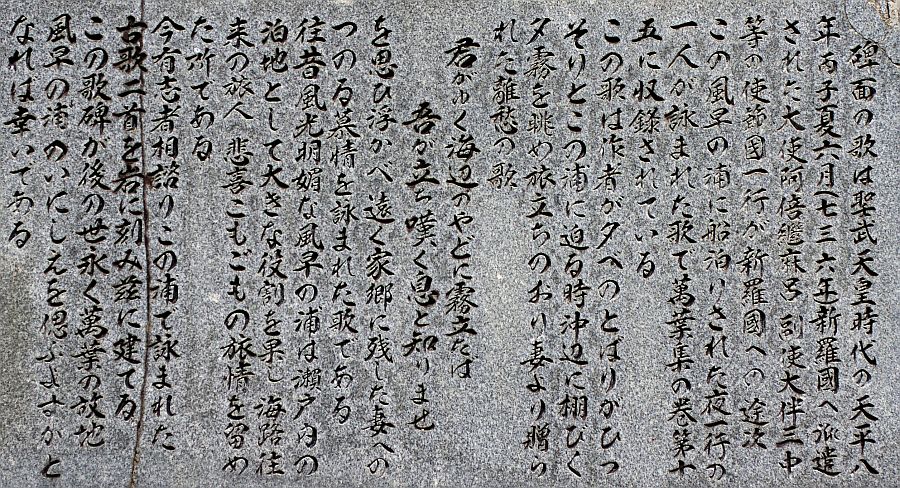 碑面の歌は聖武天皇時代の天平八
年丙子夏六月(七三六年新羅國へ派遣
された大使阿倍継麻呂 副使大伴三中
等の使節國一行が新羅國への途次
この風早の浦に船泊りされた夜一行の
一人が詠まれた歌で萬葉集の巻第十
五に収録されている
この歌は作者が夕べのとばりがひつ
そりとこの浦に迫る時沖辺に棚びく
夕霧を眺め旅立ちのおり妻より贈ら
れた離愁の歌
君がゆく海辺のやどに霧立たは
吾が立ち嘆く息と知りませ
を思ひ浮かべ 遠く家郷に残した妻への
つのる慕情を詠まれた歌である
往昔風光明媚な風早の浦は瀬戸内の
泊地として大きな役割を果し 海路往
来の旅人 悲喜こもごもの旅情を留め
た所である
今有志者相諮りこの浦で詠まれた
古歌二首を石に刻み茲に建てる
この歌碑が後の世永く萬葉の故地
風早の浦のいにしえを偲ぶよすがと
なれば幸いである